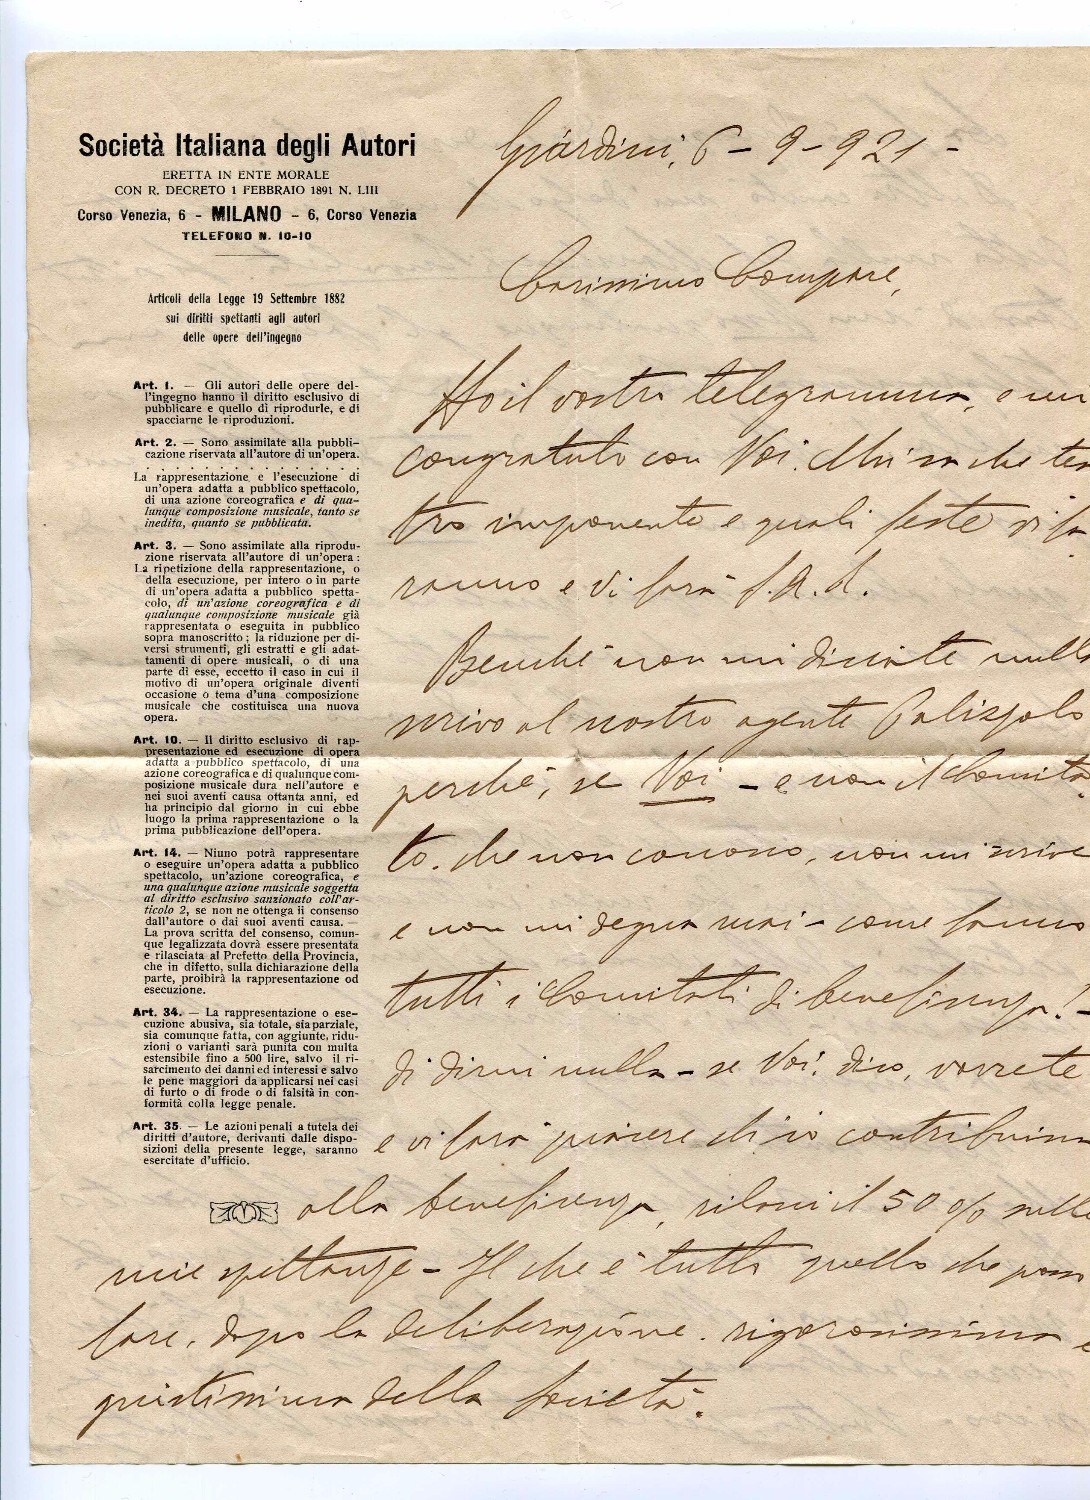 Società Italiana degli Autori
ERETTA IN ENTE MORALE
CON R. DECRETO 1 FEBBRAIO 1891 N. LIII
Corso Venezia, 6 - MILANO - 6, Corso Venezia
TELEFONO N. 10-10
Articoli della Legge 19 Settembre 1882
sui diritti spettanti agli autori
delle opere dell'ingegno
Art. 1. — Gli autori delle opere del-
l'ingegno hanno il diritto esclusivo di
pubblicare e quello di riprodurle, e di
spacciarne le riproduzioni.
Art. 2. — Sono assimilate alla pubbli-
cazione riservata all'autore di un'opera.
. . . . . . . . . . . . . . . . .
La rappresentazione e l'esecuzione di
un'opera adatta a pubblico spettacolo,
di una azione coreografica e di qua-
lunque composizione musicale, tanto se
inedita, quanto se pubblicata.
Art. 3. — Sono assimilate alla riprodu-
zione riservata all'autore di un'opera:
La ripetizione della rappresentazione, o
della esecuzione, per intero o in parte
di un'opera adatta a pubblico spetta-
colo, di un'azione coreografica e di
qualunque composizione musicale già
rappresentata o eseguita in pubblico
sopra manoscritto; la riduzione per di-
versi strumenti, gli estratti e gli adat-
tamenti di opere musicali, o di una
parte di esse, eccetto il caso in cui il
motivo di un'opera originale diventi
occasione o tema d'una composizione
musicale che costituisca una nuova
opera.
Art. 10. — Il diritto esclusivo di rap-
presentazione ed esecuzione di opera
adatta a pubblico spettacolo, di una
azione coreografica e di qualunque com-
posizione musicale dura nell'autore e
nei suoi aventi causa ottanta anni, ed
ha principio dal giorno in cui ebbe
luogo la prima rappresentazione o la
prima pubblicazione dell'opera.
Art. 14. — Niuno potrà rappresentare
o eseguire un'opera adatta a pubblico
spettacolo, un'azione coreografica, e
una qualunque azione musicale soggetta
al diritto esclusivo sanzionato coll'ar-
ticolo 2, se non ne ottenga il consenso
dall'autore o dai suoi aventi causa. —
La prova scritta del consenso, comun-
que legalizzata dovrà essere presentata
e rilasciata al Prefetto della Provincia,
che in difetto, sulla dichiarazione della
parte, proibirà la rappresentazione od
esecuzione.
Art. 34. — La rappresentazione o ese-
cuzione abusiva, sia totale, sia parziale,
sia comunque fatta, con aggiunte, ridu-
zioni o varianti sarà punita con multa
estensibile fino a 500 lire, salvo il ri-
sarcimento dei danni ed interessi e salvo
le pene maggiori da applicarsi nei casi
di furto o di frode o di falsità in con-
formità colla legge penale.
Art. 35. — Le azioni penali a tutela dei
diritti d'autore, derivanti dalle dispo-
sizioni della presente legge, saranno
esercitate d'ufficio.
Giardini, 6 - 9 - 921 -
Carissimo Compare,
Ho il vostro telegramma, e mi
congratulo con Voi. Chi sa che tea
tro imponente e quali feste si fa
ranno e vi farà f.a.d.
Benchè non mi diciate nulla
scrivo al nostro agente Palizzolo
perchè, se Voi - e non il Comita
to. che non conosco, non mi scrive
e non mi degna mai - come fanno
tutti i Comitati di beneficenza! -
di dirmi nulla - se Voi, dico, vorrete
e vi farà piacere ch'io contribuisca
alla beneficenza, rilasci il 50 % sulle
mie spettanze - Il che è tutto quello che posso
fare, dopo la deliberazione rigorosissima e
giustissima della Società.